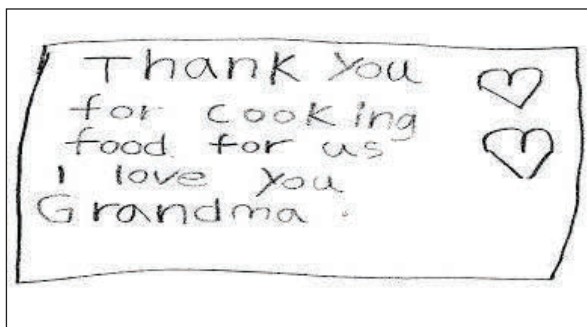 Thank you
for cooking
food for us
I love you
Grandma.